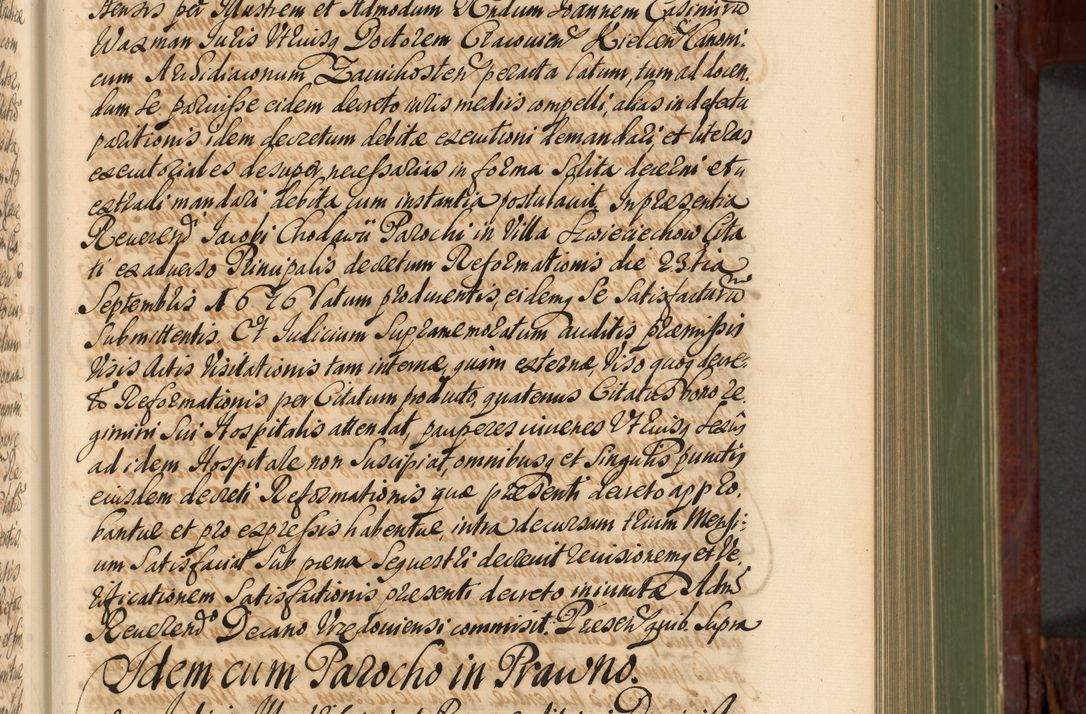 stensis per Illustrem et Admodum Rndum Joannem Casimirũ
Waxman Juris Utriusq Doctorem Cracovien Kielcen Canoni
cum Archidiaconum Zawichosten peracta latum, tum ad docen
dum se paruisse eidem decreto iuris mediis compelli, alias in defectu
paritionis idem decretum debitæ executioni demandari, et literas
executoriales desuper necessarias in forma solita decerni et
extradi mandari debita cum instantia postulavit. In præsentia
Reverendi Jacobi Chodawii Parochi in Villa Szwieciechow Cita
ti ex adverso Principalis decretum Reformationis die 23tia
Septembris 1676 latum producentis, eidemq se satisfacturũ
submittentis. Et Judicium supramemoratum auditis præmissis
visis Actis Visitationis tam internæ, quam externæ, viso quoq decre-
to Reformationis per Citatum producto, quatenus Citatus bono re
gimini sui Hospitalis attendat, pauperes iuvenes Utriusq sexûs
ad idem Hospitale non suscipiat, omnibusq et singulis punctis
eiusdem decreti Reformationis quæ præsenti decreto appro-
bantur et pro expressis habentur, intra decursum trium Mensi-
um satisfaciat sub pæna sequestri decrevit revisionemq et Ve-
rificationem satisfactionis præsenti decreto iniunctæ Adm
Reverendo Decano Urzedoviensi commisit. Præsen quib supra
Idem cum Parocho in Prawno.